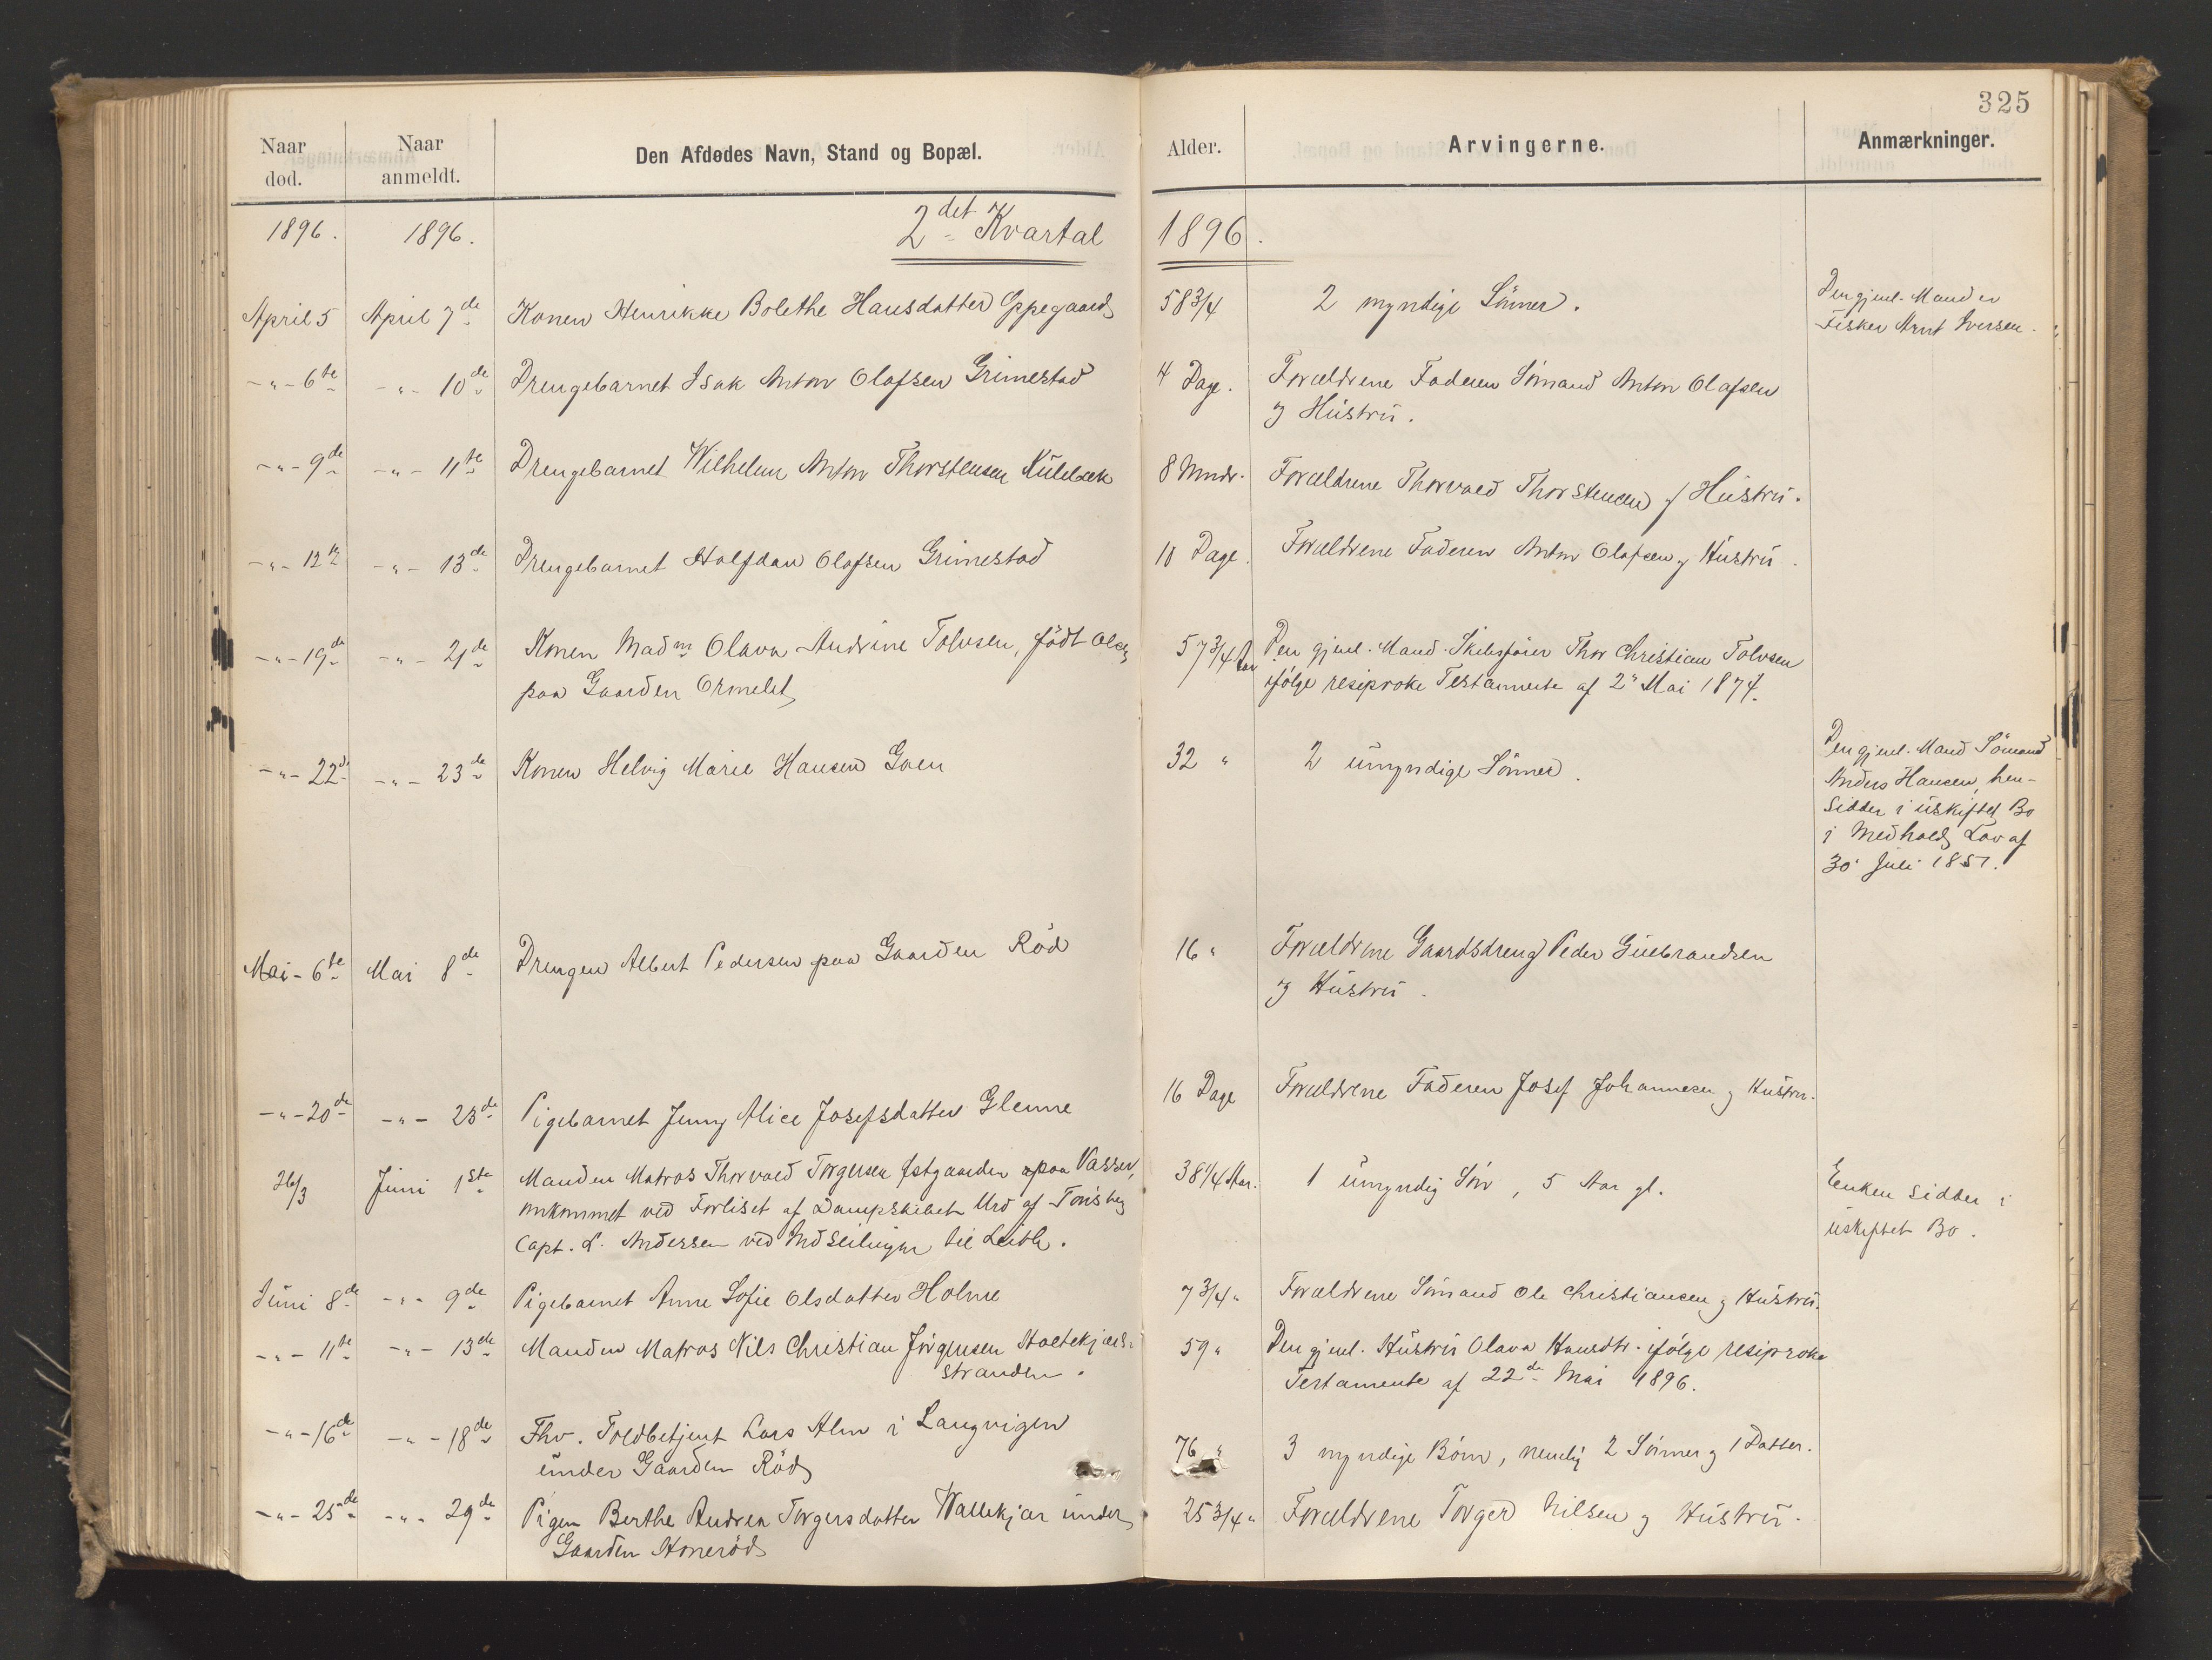 325
Naar død. Naar anmeldt. Den Afdødes Navn, Stand og Bopæl. Alder. Arvingerne. Anmærkninger.
1896. 1896. 2det Kvartal 1896.
April 5 April 7de Konen Henrikke Bolethe Hansdatter Oppegaard 58 3/4 2 myndige Sönner. Den gjenl. Mand er
Fisker Arnt Iversen.
-"- 6te -"- 10de Drengebarnet Isak Anton Olafsen Grimestad 4 Dage. Forældrene Faderen Sömand Anton Olafsen
og Hustru.
-"- 9de -"- 11te Drengebarnet Wilhelm Anton Thorstensen Kulebæk 8 Mndr. Forældrene Thorvald Thorstensen og Hustru.
-"- 12te -"- 13de Drengebarnet Halfdan Olafsen Grimestad 10 Dage. Forældrene Faderen Anton Olafsen og Hustru.
-"- 19de -"- 21de Konen Madm Olava Andrine Tolvsen, født Olsen 57 3/4 Aar Den gjenl. Mand Skibsfører Thor Christian Tolvsen
paa Gaarden Ormelet ifølge resiproke Testamente af 2" Mai 1874.
-"- 22de -"- 23de Konen Helvig Marie Hansen Goen 32 " 2 umyndige Sönner. Den gjenl. Mand Sömand
Anders Hansen, hen-
sidder i uskiftet Bo
i Medhold Lov af
30' Juli 1851.
Mai - 6te Mai 8de Drengen Albert Pedersen paa Gaarden Röd 16 " Forældrene Gaardsdreng Peder Gulbrandsen
og Hustru.
-"- 20de -"- 23de Pigebarnet Jenny Alice Josefsdatter Glenne 16 Dage Forældrene Faderen Josef Johannesen og Hustru.
26/3 Juni 1ste Manden Matros Thorvald Torgersen Østgaarden paa Vasser, 38 1/4 Aar. 1 umyndig Sön, 5 Aar gl. Enken sidder i
omkommet ved Forliset af Dampskibet Urd af Tønsberg uskiftet Bo.
Capt. L. Andersen ved Indseilingen til Leith.
Juni 8de -"- 9de Pigebarnet Anne Sofie Olsdatter Holme 7 3/4 " Forældrene Sömand Ole Christiansen og Hustru.
-"- 11te -"- 13de Manden Matros Nils Christian Jörgensen Holtekjær- 59 " Den gjenl. Hustru Olava Hansdtr. ifølge resiproke
stranden. Testamente af 22de Mai 1896.
-"- 16de -"- 18de Fhv. Toldbetjent Lars Alm i Langvigen 76 " 3 myndige Börn, nemlig 2 Sönner og 1 Datter.
under Gaarden Röd
-"- 25de -"- 29de Pigen Berthe Andrea Torgersdatter Wallekjær under 25 3/4 " Forældrene Torger Nilsen og Hustru.
Gaarden Honeröd